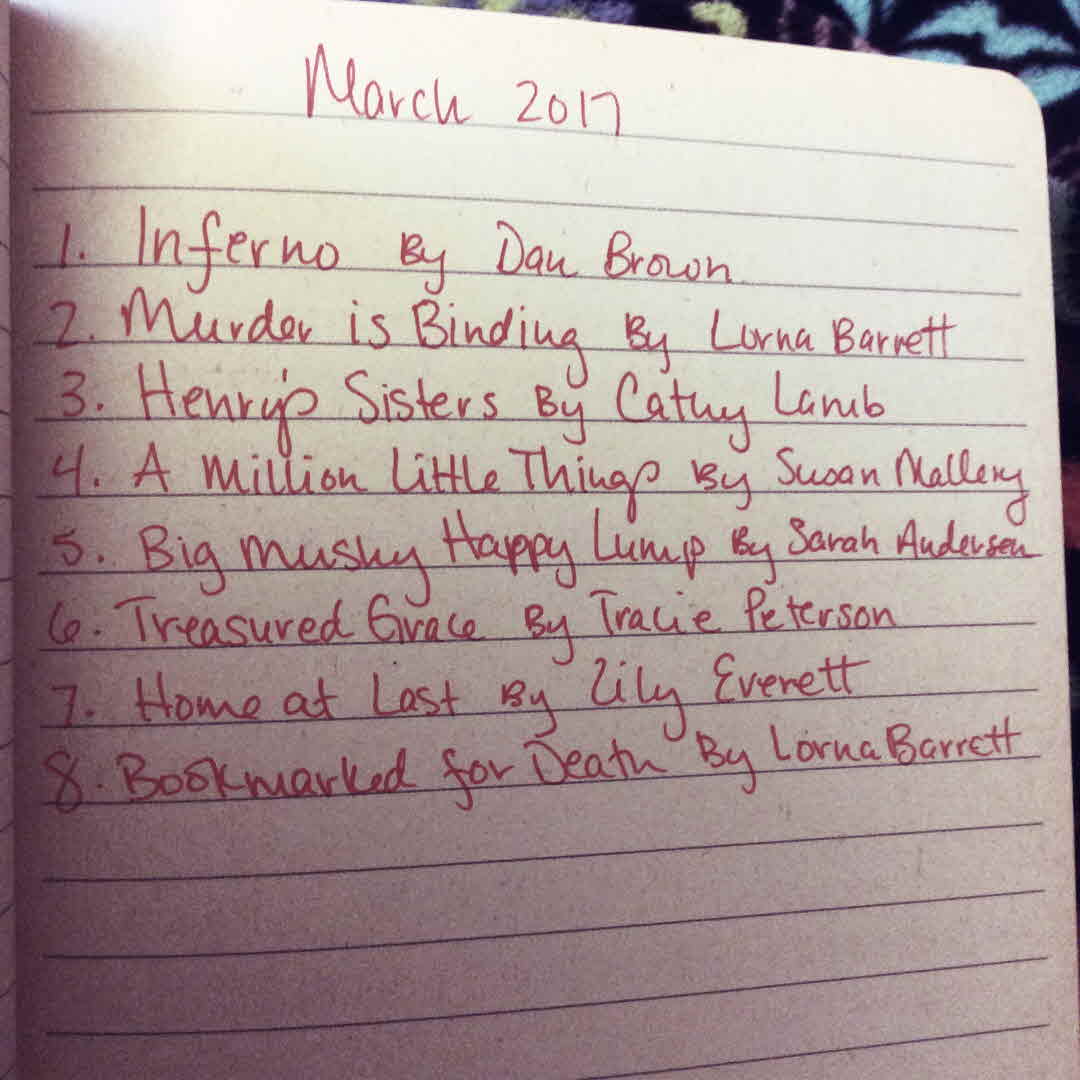 March 2017
1. Inferno By Dan Brown
2. Murder is Binding By Lorna Barrett
3. Henry's Sisters By Cathy Lamb
4. A Million Little Things By Susan Mallery
5. Big mushy Happy Lump By Sarah Andersen
6. Treasured Grace By Tracie Peterson
7. Home at Last By Lily Everett
8. Bookmarked for Death By Lorna Barrett